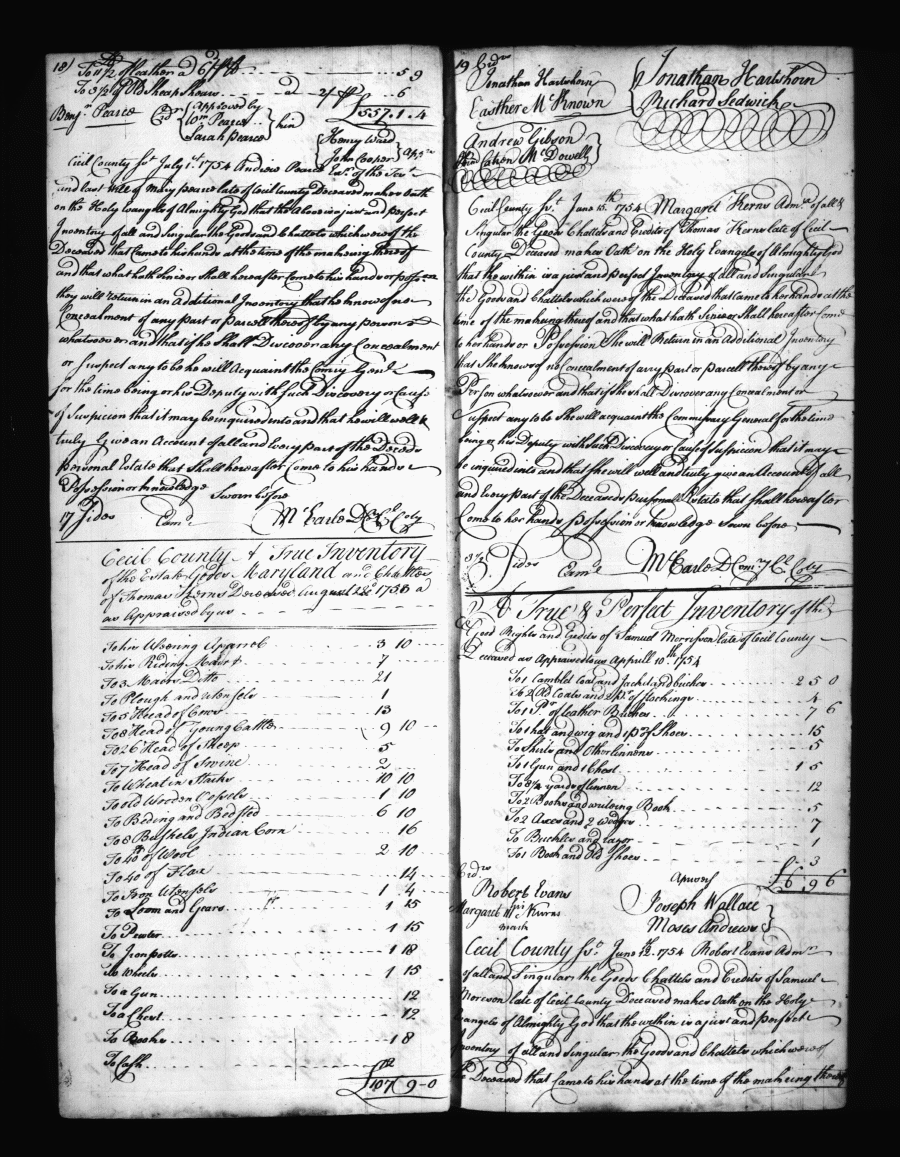 18)
To 11 1/2 lb of Leather a 6 p lb 5 9
To 3 lb of Old Sheep Shears a 2/ p lb 6
£557.1.4
Benjn Pearce
Approved by
Wm Pearce
Sarah Pearce
kin
Henry Ward
John Cooper
Appr
Cecil County Sst July 1st 1754 Andrew Pearce Exr. of the Testt
and last Will of Mary Pearce late of Cecil County Deceased makes Oath
on the Holy Evangels of Almighty God that the Above is a just and perfect
Inventory of all and Singular the Goods and Chattels which were of the
Deceased that Came to his hands at the time of the making thereof
and that what hath Since or Shall hereafter Come to his hands or possn
they will return in an Additional Inventory that he knows of no
Concealment of any part or parcell thereof by any person
whatsoever and that if he Shall Discover any Concealment
or Suspect any to be he will Acquaint the Comry Genl
for the time being or his Deputy with Such Discovery or Cause
of Suspicion that it may be inquired into and that he will well &
truly Give an Account of all and Every part of the Deceds
personal Estate that Shall hereafter Come to his hands
Possession or knowledge
Sworn before
17 Sides Exmd McEarle D Cy Cl Coty
Cecil County A True Inventory
of the Estate Goods Maryland and Chattles
of Thomas Kerns Deceased August 22d 1753 a
as Appraised by us
To his Wearing Apparrel 3 10
To his Riding Mare & 7
To 3 Mares Ditto 21
To Plough and Utensels 1
To 5 Head of Cows 13
To 8 Head of Young Cattle 9 10
To 26 Head of Sheep 5
To 7 Head of Swine 2
To Wheat in Stacks 10 10
To Old Wooden Vessels 1 10
To Beding and Bedsted 6 10
To 8 Bushels Indian Corn 16
To 40 lb of Wool 2 10
To 40 of Flax 14
To Iron Utensels 1 4
To Loom and Gears 1 15
To Pewter 1 15
To Iron potts 1 18
To Wheels 1 15
To a Gun 12
To a Chest 12
To Books 1 8
To Cash
£107 9-0
19 Cidrs
Jonathan Hartshorn
Easther McKnown
Jonathan Hartshorn
Richard Sedwick
Andrew Gibson
Cation McDowell
Cecil County Sst June 15th 1754 Margaret Kerns Admx of all &
Singular the Goods Chattels and Credits of Thomas Kerns late of Cecil
County Deceased makes Oath on the Holy Evangels of Almighty God
that the within is a just and perfect Inventory of all and Singular
the Goods and Chattels which were of the Deceased that Came to her hands at the
time of the making thereof and that what hath Since or Shall hereafter Come
to her hands or Possession She will Return in an Additional Inventory
that She knows of no Concealment of any Part or Parcell thereof by any
Person whatsoever and that if she shall Discover any Concealment or
Suspect any to be She will acquaint the Commisary General for the time
being or his Deputy with Such Discovery or Cause of Suspicion that it may
be inquired into and that she will well and truly give an Account of all
and Every part of the Deceaseds personal Estate that shall hereafter
Come to her hands possession or knowledge Sworn before
Sides Exmd McEarle D Comy Cl Coty
A True & Perfect Inventory of the
Good Rights and Credits of Samuel Morrison late of Cecil County
Deceased as Appraised us Aprill 10th 1754
To 1 Camblet Coat and Jackit and buckes 2 5 0
To 2 Old Coats and 2 Pr of Stockings 4
To 1 Pr of leather Britches 7 6
To 1 hat and wig and 1 Pr Shoes 15
To Shirts and Other linnens 5
To 1 Gun and 1 Chest 1 5
To 8 1/4 yards of linnen 12
To 2 Books and writeing Book 5
To 2 Axes and 2 Wedges 7
To Buckles and razor 1
To 1 Book and Old Shoes 3
£6.9 6
Cidrs
Robert Evans
Margaret M Kurns
mark
Apprs
Joseph Wallace
Moses Andrews
Cecil County Sst June 12th 1754 Robert Evans Admr
of all and Singular the Goods Chattels and Credits of Samuel
Morrison late of Cecil County Deceased makes Oath on the Holy
Evangels of Almighty God that the within is a just and perfect
Inventory of all and Singular the Goods and Chattels which were of
the Deceased that Came to his hands at the time of the making thereof